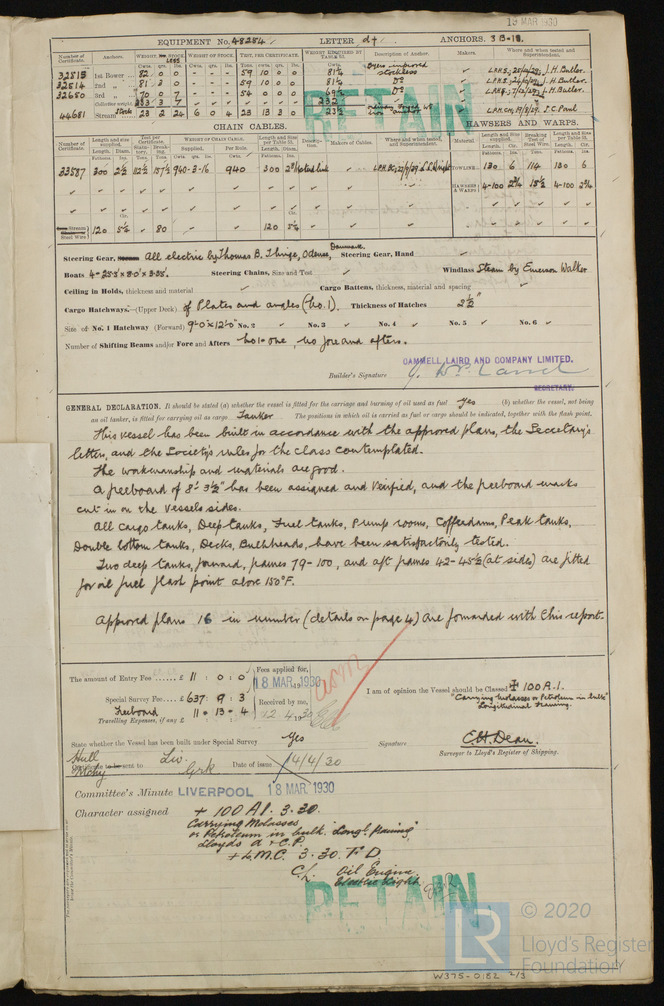 18 MAR 1930
EQUIPMENT No. 48284 LETTER d† ANCHORS. 3 B-1S.
Number of Certificate. Anchors. WEIGHT, EX STOCK WEIGHT OF STOCK. TEST, PER CERTIFICATE. WEIGHT REQUIRED BY TABLE 31. Description of Anchor. Makers. Where and when tested and Superintendent.
Cwts. qrs. lbs. Cwts. qrs. lbs. Tons. cwts. qrs. lbs. Cwts.
32513 1st Bower 82 0 0 59 10 0 0 81¼ stockless J.H. Butler.
32514 2nd „ 81 3 0 59 10 0 0 81¼ Do J.H. Butler.
32650 3rd „ 70 0 7 54 0 0 0 69½ Do J.H. Butler.
Collective weight 233 3 7 232
44681 Stream 23 2 24 6 0 23 13 3 0 23½ J.C. Paul
RETAIN
CHAIN CABLES. HAWSERS AND WARPS.
Number of Certificate. Length and size supplied. Test per Certificate. WEIGHT OF CHAIN CABLE. Length and Size per Table 31. Description. Makers of Cables. Where and when tested, and Superintendent. Material Length and size supplied. Breaking Test of Steel Wire. Length and Size per Table 31.
Fathoms. Diam. Supplied. Per Rule. Length. Cir. Tons. Length. Cir.
33587 300 2½ 112½ 157½ 940-3-16 940 300 TOWLINE 130 6 114 130 6
HAWSERS & WARPS 4-100 2¾ 15½ 4-100 2¾
Stream Steel Wire 120 5½ 80 120 5½
Steering Gear, All electric by Thomas B. Thrige, Odense, Denmark. Steering Gear, Hand ✓
Boats 4-25.3'x8.0'x3.25'. Steering Chains, Size and Test ✓ Windlass Steam by Emerson Walker
Ceiling in Holds, thickness and material ✓ Cargo Battens, thickness, material and spacing ✓
Cargo Hatchways.—(Upper Deck) of Plates and angles (No. 1). Thickness of Hatches 2½"
Size of No. 1 Hatchway (Forward) 9'-0"x12'-0" No. 2 ✓ No. 3 ✓ No. 4 ✓ No. 5 ✓ No. 6 ✓
Number of Shifting Beams and/or Fore and Afters No 1 = one, no fore and afters.
CAMMELL, LAIRD AND COMPANY LIMITED.
Builder's Signature
SECRETARY.
GENERAL DECLARATION. It should be stated (a) whether the vessel is fitted for the carriage and burning of oil used as fuel Yes (b) whether the vessel, not being
an oil tanker, is fitted for carrying oil as cargo Tanker The positions in which oil is carried as fuel or cargo should be indicated, together with the flash point.
This vessel has been built in accordance with the approved plans, the Secretary's
letters, and the Society's rules for the class contemplated.
The workmanship and materials are good.
A freeboard of 8'-3½" has been assigned and verified, and the freeboard marks
cut in on the vessels sides.
All Cargo tanks, Deep tanks, Fuel tanks, Pump rooms, Cofferdams, Peak tanks,
Double bottom tanks, Decks, Bulkheads, have been satisfactorily tested.
Two deep tanks, forward, frames 79-100, and aft frames 42-45½ (at sides) are fitted
for oil fuel flash point above 150°F.
Approved plans 16 in number (details on page 4) are forwarded with this report.
The amount of Entry Fee ...... £ 11 : 0 : 0
Fees applied for,
18 MAR 1930
Special Survey Fee ... £ 637 : 9 : 3
Received by me,
Freeboard 11 - 13 - 4
Travelling Expenses, if any £ 12.4.1930
I am of opinion the Vessel should be Classed ✠ 100 A.1.
"Carrying Molasses or Petroleum in bulk"
"Longitudinal Framing.
State whether the Vessel has been built under Special Survey Yes
Signature E.H. Dean.
Surveyor to Lloyd's Register of Shipping.
Hull Liv
Mchy Grk
Certificate to be sent to Date of issue 14/4/30
Committee's Minute LIVERPOOL 18 MAR 1930
Character assigned + 100 A1. 3.30.
Carrying Molasses
or Petroleum in bulk "Longl. framing"
Lloyds A & C.P.
+ L.M.C. 3.30. T D
C.L. Oil Engine
Electric Light.
RETAIN
© 2020
LR Lloyd's Register
Foundation
W375-0182 2/3